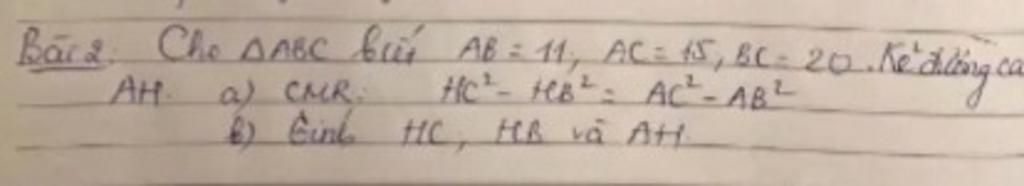 Bài 2. Cho ΔABC biết AB = 11, AC = 15, BC = 20. Kẻ đường ca
AH. a) CMR: HC² - HB² = AC² - AB²
b) Tính HC, HB và AH.